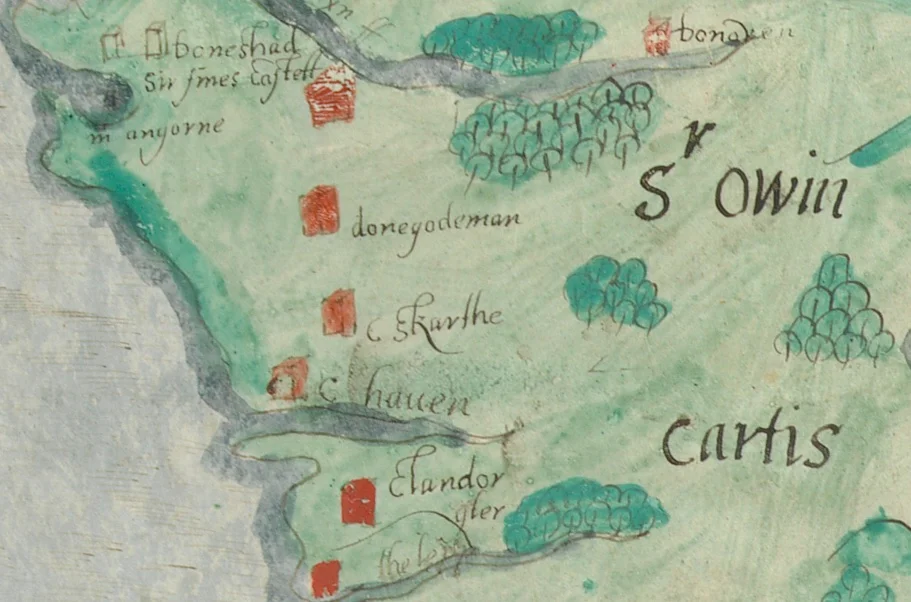 bonaven
boneshad
Sir Jmes Castell
m angorne
Sr Owin
donegodeman
c skarthe
c haven
cartis
clandor
gler
the